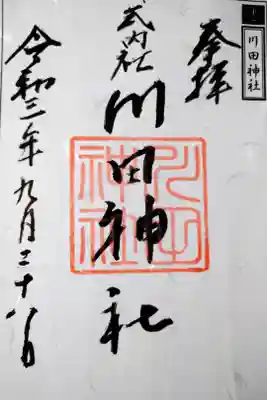 十二
川田神社
奉拝
式内社
川田神社
川田神社
令和三年九月二十八日